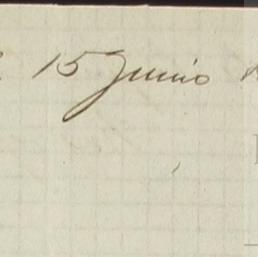 15 Junio